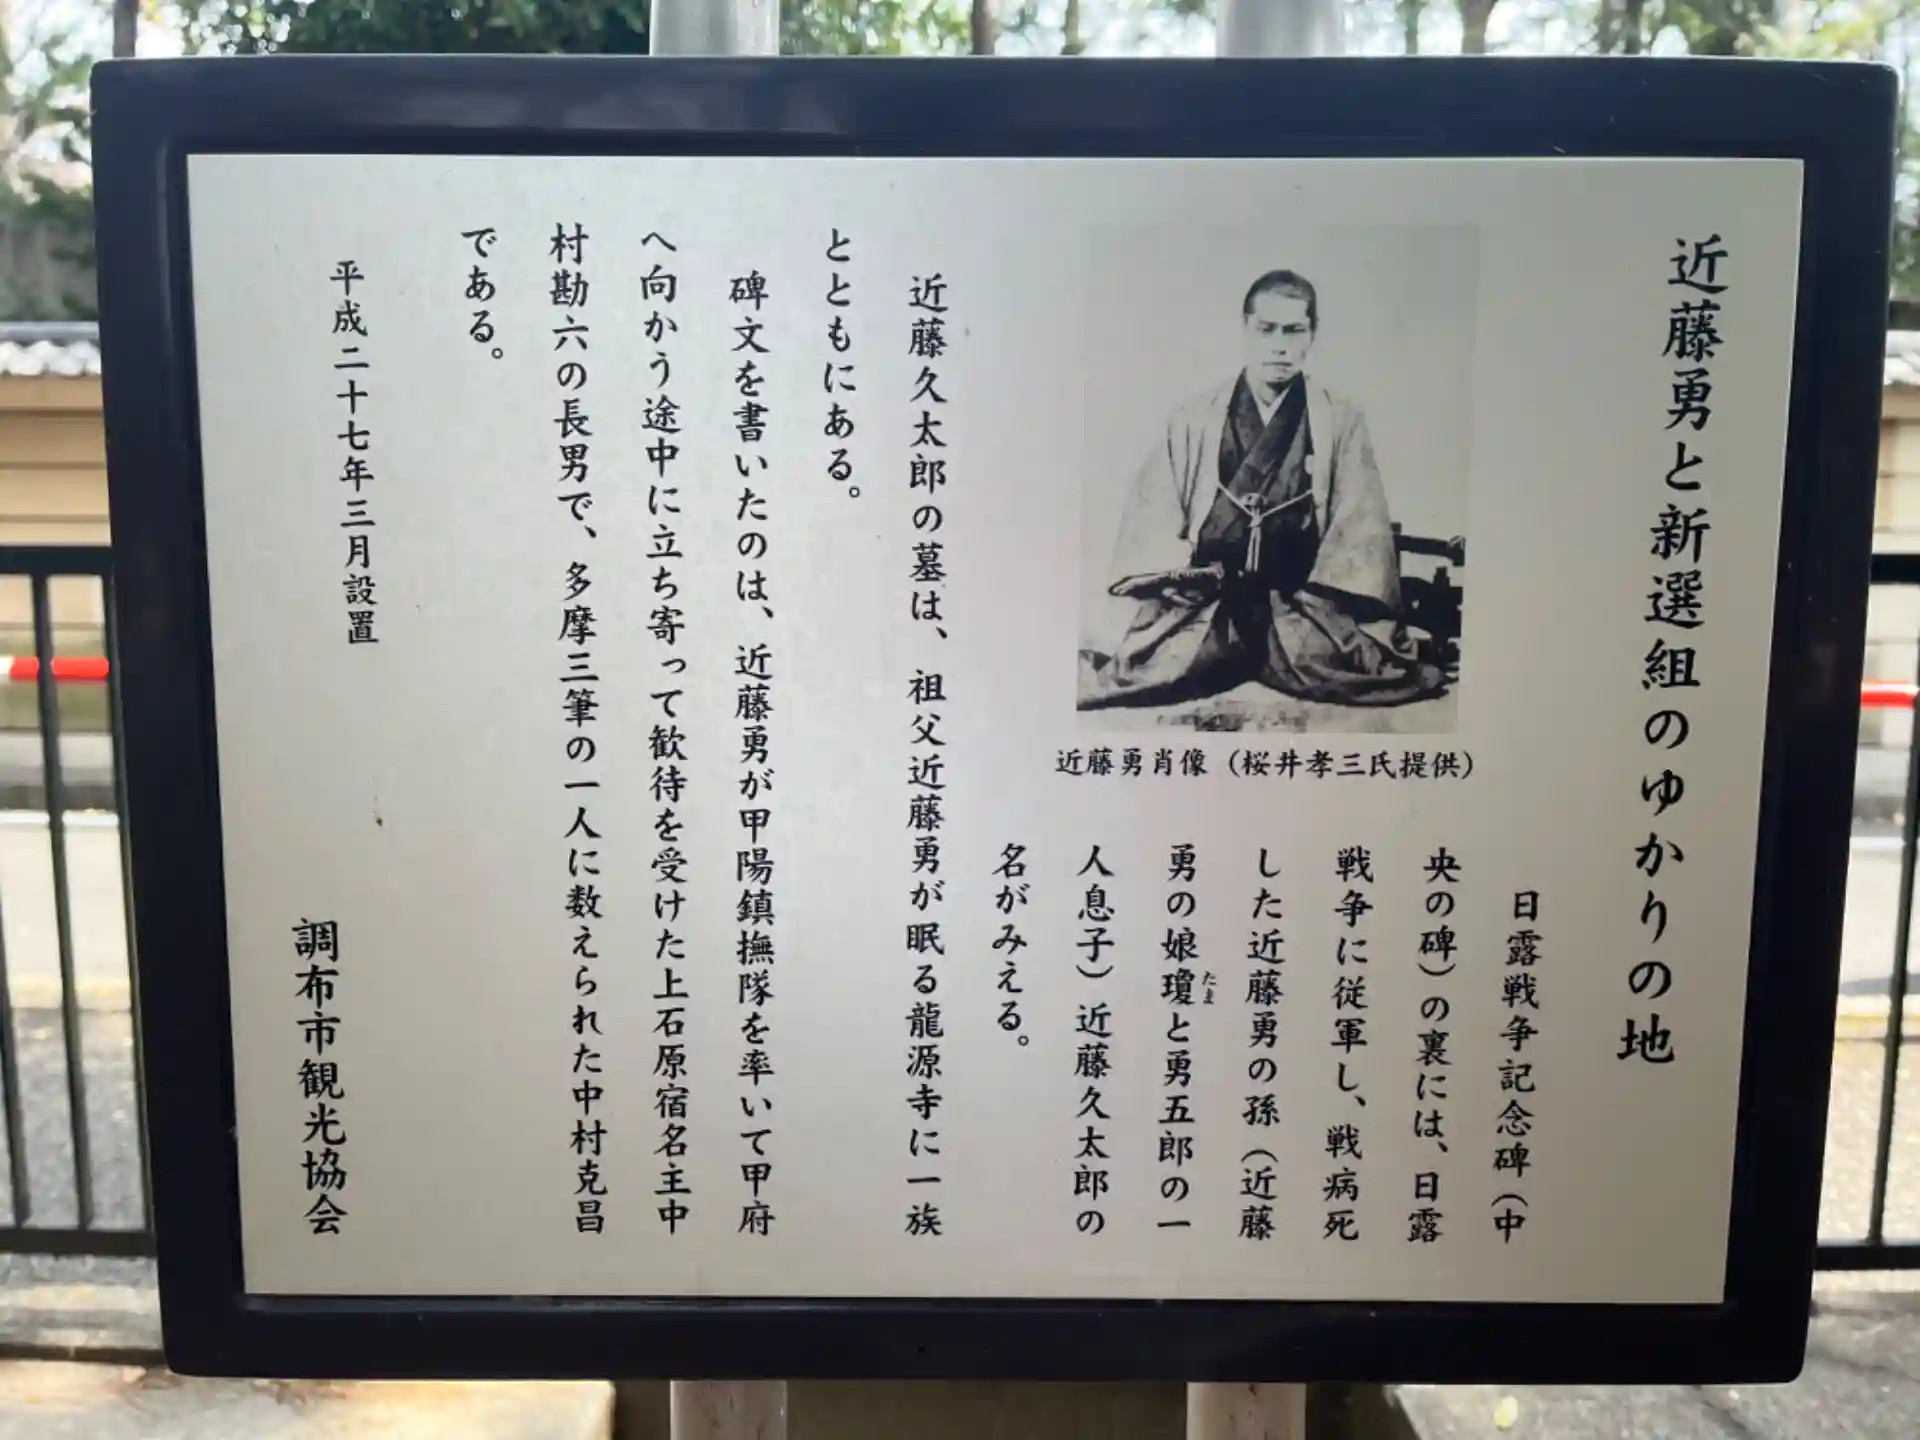 近藤勇と新選組のゆかりの地
日露戦争記念碑（中
央の碑）の裏には、日露
戦争に従軍し、戦病死
した近藤勇の孫（近藤
勇の娘瓊たまと勇五郎の一
人息子）近藤久太郎の
名がみえる。
近藤勇肖像（桜井孝三氏提供）
近藤久太郎の墓は、祖父近藤勇が眠る龍源寺に一族
とともにある。
碑文を書いたのは、近藤勇が甲陽鎮撫隊を率いて甲府
へ向かう途中に立ち寄って歓待を受けた上石原宿名主中
村勘六の長男で、多摩三筆の一人に数えられた中村克昌
である。
平成二十七年三月設置
調布市観光協会